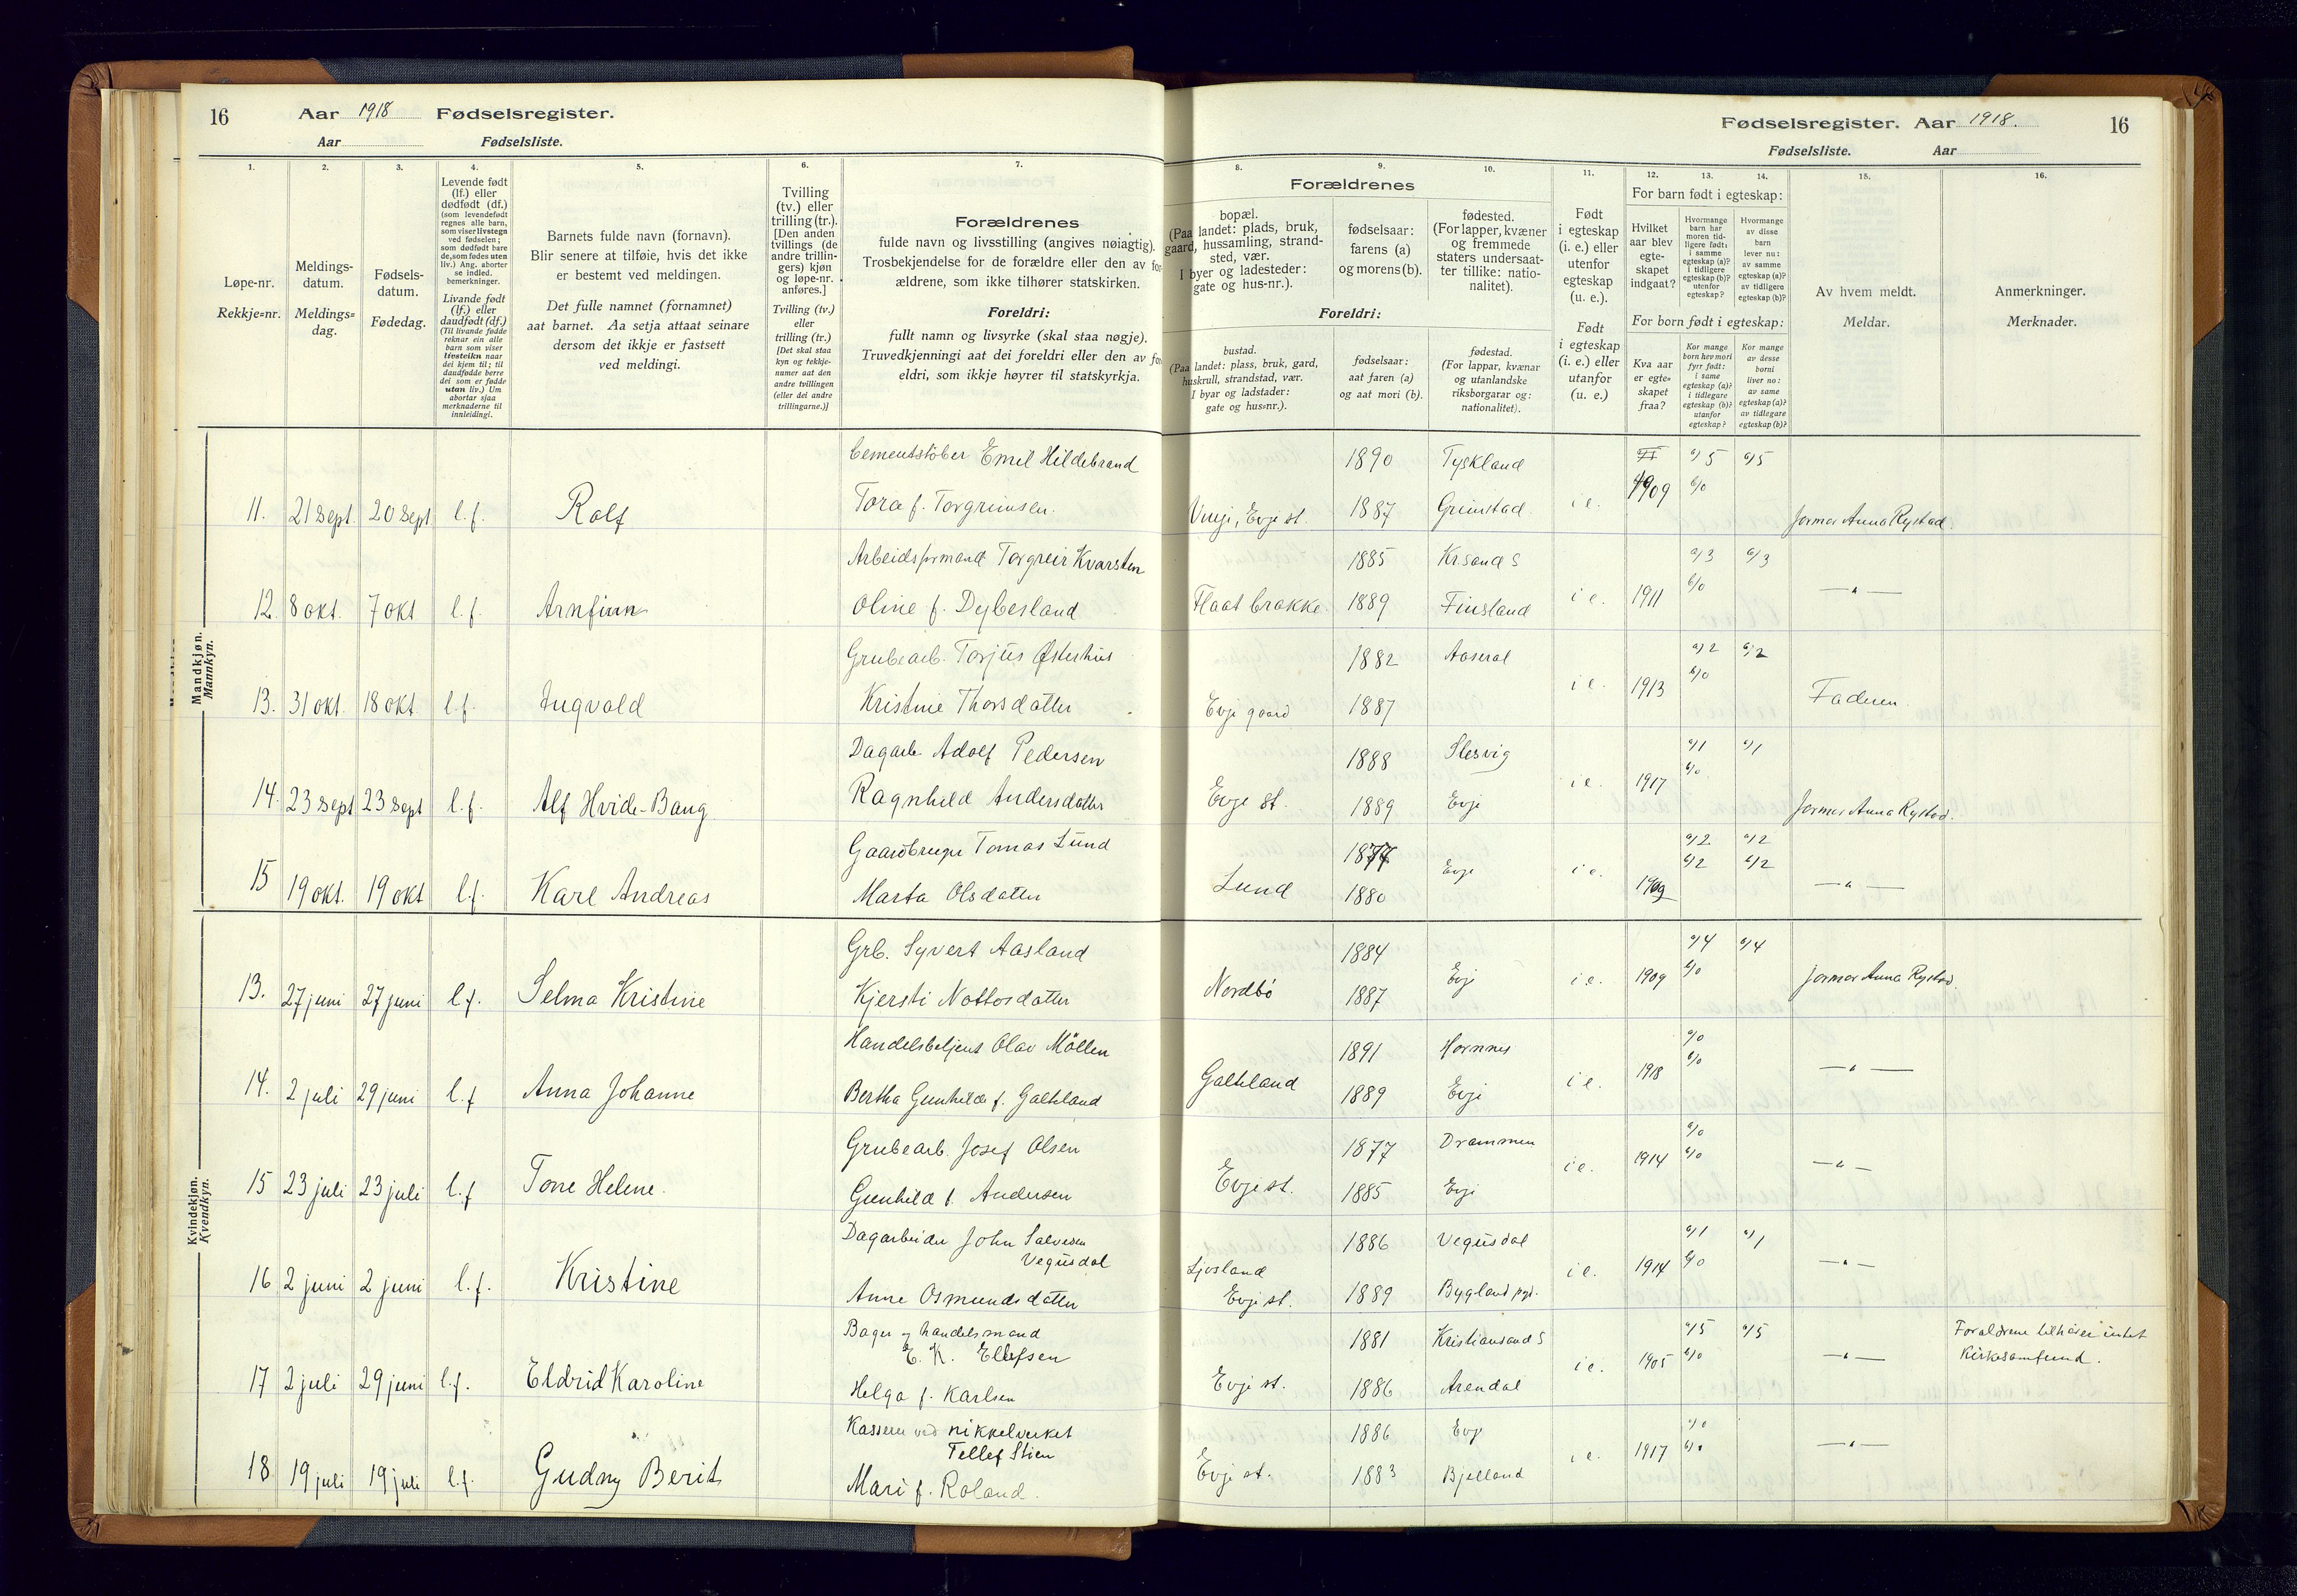 16 Aar 1918 Fødselsregister.
Aar Fødselsliste.
Fødselsregister. Aar 1918. 16
Fødselsliste. Aar
1. 2. 3. 4. 5. 6. 7.
8. 9. 10. 11. 12. 13. 14. 15. 16.
Løpe-nr.
Rekkje=nr.
Meldings-
datum.
Meldings=
dag.
Fødsels-
datum.
Fødedag.
Levende født
(lf.) eller
dødfødt (df.)
(som levendefødt
regnes alle barn,
som viser livstegn
ved fødselen;
som dødfødt bare
de, som fødes uten
liv.) Ang. aborter
se indled.
bemerkninger.
Livande født
(lf.) eller
daudfødt (df.)
(Til livande fødde
reknar ein alle
barn som viser
livsteikn naar
dei kjem til; til
daudfødde berre
dei som er fødde
utan liv.) Um
abortar sjaa
merknaderne til
innleidingi.
Barnets fulde navn (fornavn).
Blir senere at tilføie, hvis det ikke
er bestemt ved meldingen.
Det fulle namnet (fornamnet)
aat barnet. Aa setja attaat seinare
dersom det ikkje er fastsett
ved meldingi.
Tvilling
(tv.) eller
trilling (tr.).
[Den anden
tvillings (de
andre trillin-
gers) kjøn
og løpe-nr.
anføres.]
Tvilling (tv.)
eller
trilling (tr.)
[Det skal staa
kyn og rekkje-
numer aat den
andre tvillingen
(eller dei andre
trillingarne.)]
Forældrenes
fulde navn og livsstilling (angives nøiagtig).
Trosbekjendelse for de forældre eller den av for
ældrene, som ikke tilhører statskirken.
Foreldri:
fullt namn og livsyrke (skal staa nøgje).
Truvedkjenningi aat dei foreldri eller den av for
eldri, som ikkje høyrer til statskyrkja.
Forældrenes
bopæl.
(Paa landet: plads, bruk,
gaard, hussamling, strand-
sted, vær.
I byer og ladesteder:
gate og hus-nr.).
fødselsaar:
farens (a)
og morens (b).
fødested.
(For lapper, kvæner
og fremmede
staters undersaat-
ter tillike: natio-
nalitet).
Foreldri:
bustad.
(Paa landet: plass, bruk, gard,
huskrull, strandstad, vær.
I byar og ladstader:
gate og hus=nr.).
fødselsaar:
aat faren (a)
og aat mori (b).
fødestad.
(For lappar, kvænar
og utanlandske
riksborgarar og:
nationalitet).
Født
i egteskap
(i. e.) eller
utenfor
egteskap
(u. e.).
Født
i egteskap
(i. e.) eller
utanfor
(u. e.)
For barn født i egteskap:
Hvilket
aar blev
egte-
skapet
indgaat?
Hvormange
barn har
moren tid-
ligere født:
i samme
egteskap (a)?
i tidligere
egteskap (b)?
utenfor
egteskap?
Hvormange
av disse
barn
lever nu:
av samme
egteskap (a)?
av tidligere
egteskap (b)?
For born født i egteskap:
Kva aar
er egte-
skapet
fraa?
Kor mange
born hev mori
fyrr født:
i same
egteskap (a)?
i tidlegare
egteskap (b)?
utanfor
egteskap?
Kor mange
av desse
borni
liver no:
av same
egteskap (a)?
av tidlegare
egteskap (b)?
Av hvem meldt.
Meldar.
Anmerkninger.
Merknader.
Mandkjøn.
Mannkyn.
Cementstöber Emil Hildebrand 1890 Tyskland a/5 a/5
11. 21 Sept. 20 Sept. l.f. Rolf Tora f. Torgrimsen. Evje st. 1887 Grimstad i e. 1909 b/0 Jormor Anna Rystad.
Arbeidsformand Torgreir Kvarsten 1885 Kr.sand S a/3 a/3
12. 8 okt. 7 okt l.f. Arnfinn Oline f. Dybesland Flaat brakke 1889 Finsland i e. 1911 b/0 —"—
Grubearb. Torjus Østerhus 1882 Aaseral a/2 a/2
13. 31 okt. 18 okt. l.f. Ingvald Kristine Thorsdatter Evje gaard 1887 i e. 1913 b/0 Faderen.
Dagarb. Adolf Pedersen 1888 Slesvig a/1 a/1
14. 23 Sept 23 Sept l.f. Alf Hvide-Bang Ragnhild Andersdatter Evje st. 1889 Evje i e. 1917 b/0 Jormor Anna Rystad.
Gaardbruger Tomas Lund 1877 a/2 a/2
15 19 okt. 19 okt l.f. Karl Andreas Marta Olsdatter Lund 1880 Evje i e. 1909 b/2 b/2 —"—
Kvindekjøn.
Kvendkyn.
Grb. Syvert Aasland 1884 a/4 a/4
13. 27 juni 27 juni l.f. Selma Kristine Kjersti Nottosdatter Nordbö 1887 Evje i e. 1909 b/0 jormor Anna Rystad.
Handelsbetjent Olav Möllen 1891 Hornnes a/0
14. 2 juli 29 juni l.f Anna Johanne Bertha Gunhilda f. Galteland Galteland 1889 Evje i e. 1918 b/0 —"—
Grubearb. Josef Olsen 1877 Drammen a/0
15 23 juli 23 juli l.f Tone Helene. Gunhild f. Andersen Evje st. 1885 Evje i e. 1914 b/0 —"—
Dagarbeider John Salvesen 1886 Vegusdal a/1 a/1
Vegusdal
16 2 juni 2 juni l.f. Kristine Anne Osmundsdatter Ljosland Evje st. 1889 Bygland pgd. i e. 1914 b/0 —"—
Bager og handelsmand 1881 Kristiansand S a/5 a/5 Forældrene tilhører intet
E. K. Ellefsen kirkesamfund.
17 2 juli 29 juni l.f. Eldrid Karoline Helga f. Karlsen Evje st. 1886 Arendal i e. 1905 b/0 —"—
Kasserer ved nikkelverket 1886 Evje a/0
Tellef Stien
18 19 juli 19 juli l.f. Gudny Berit Mari f. Roland. Evje st. 1883 Bjelland i e. 1917 b/0 —"—